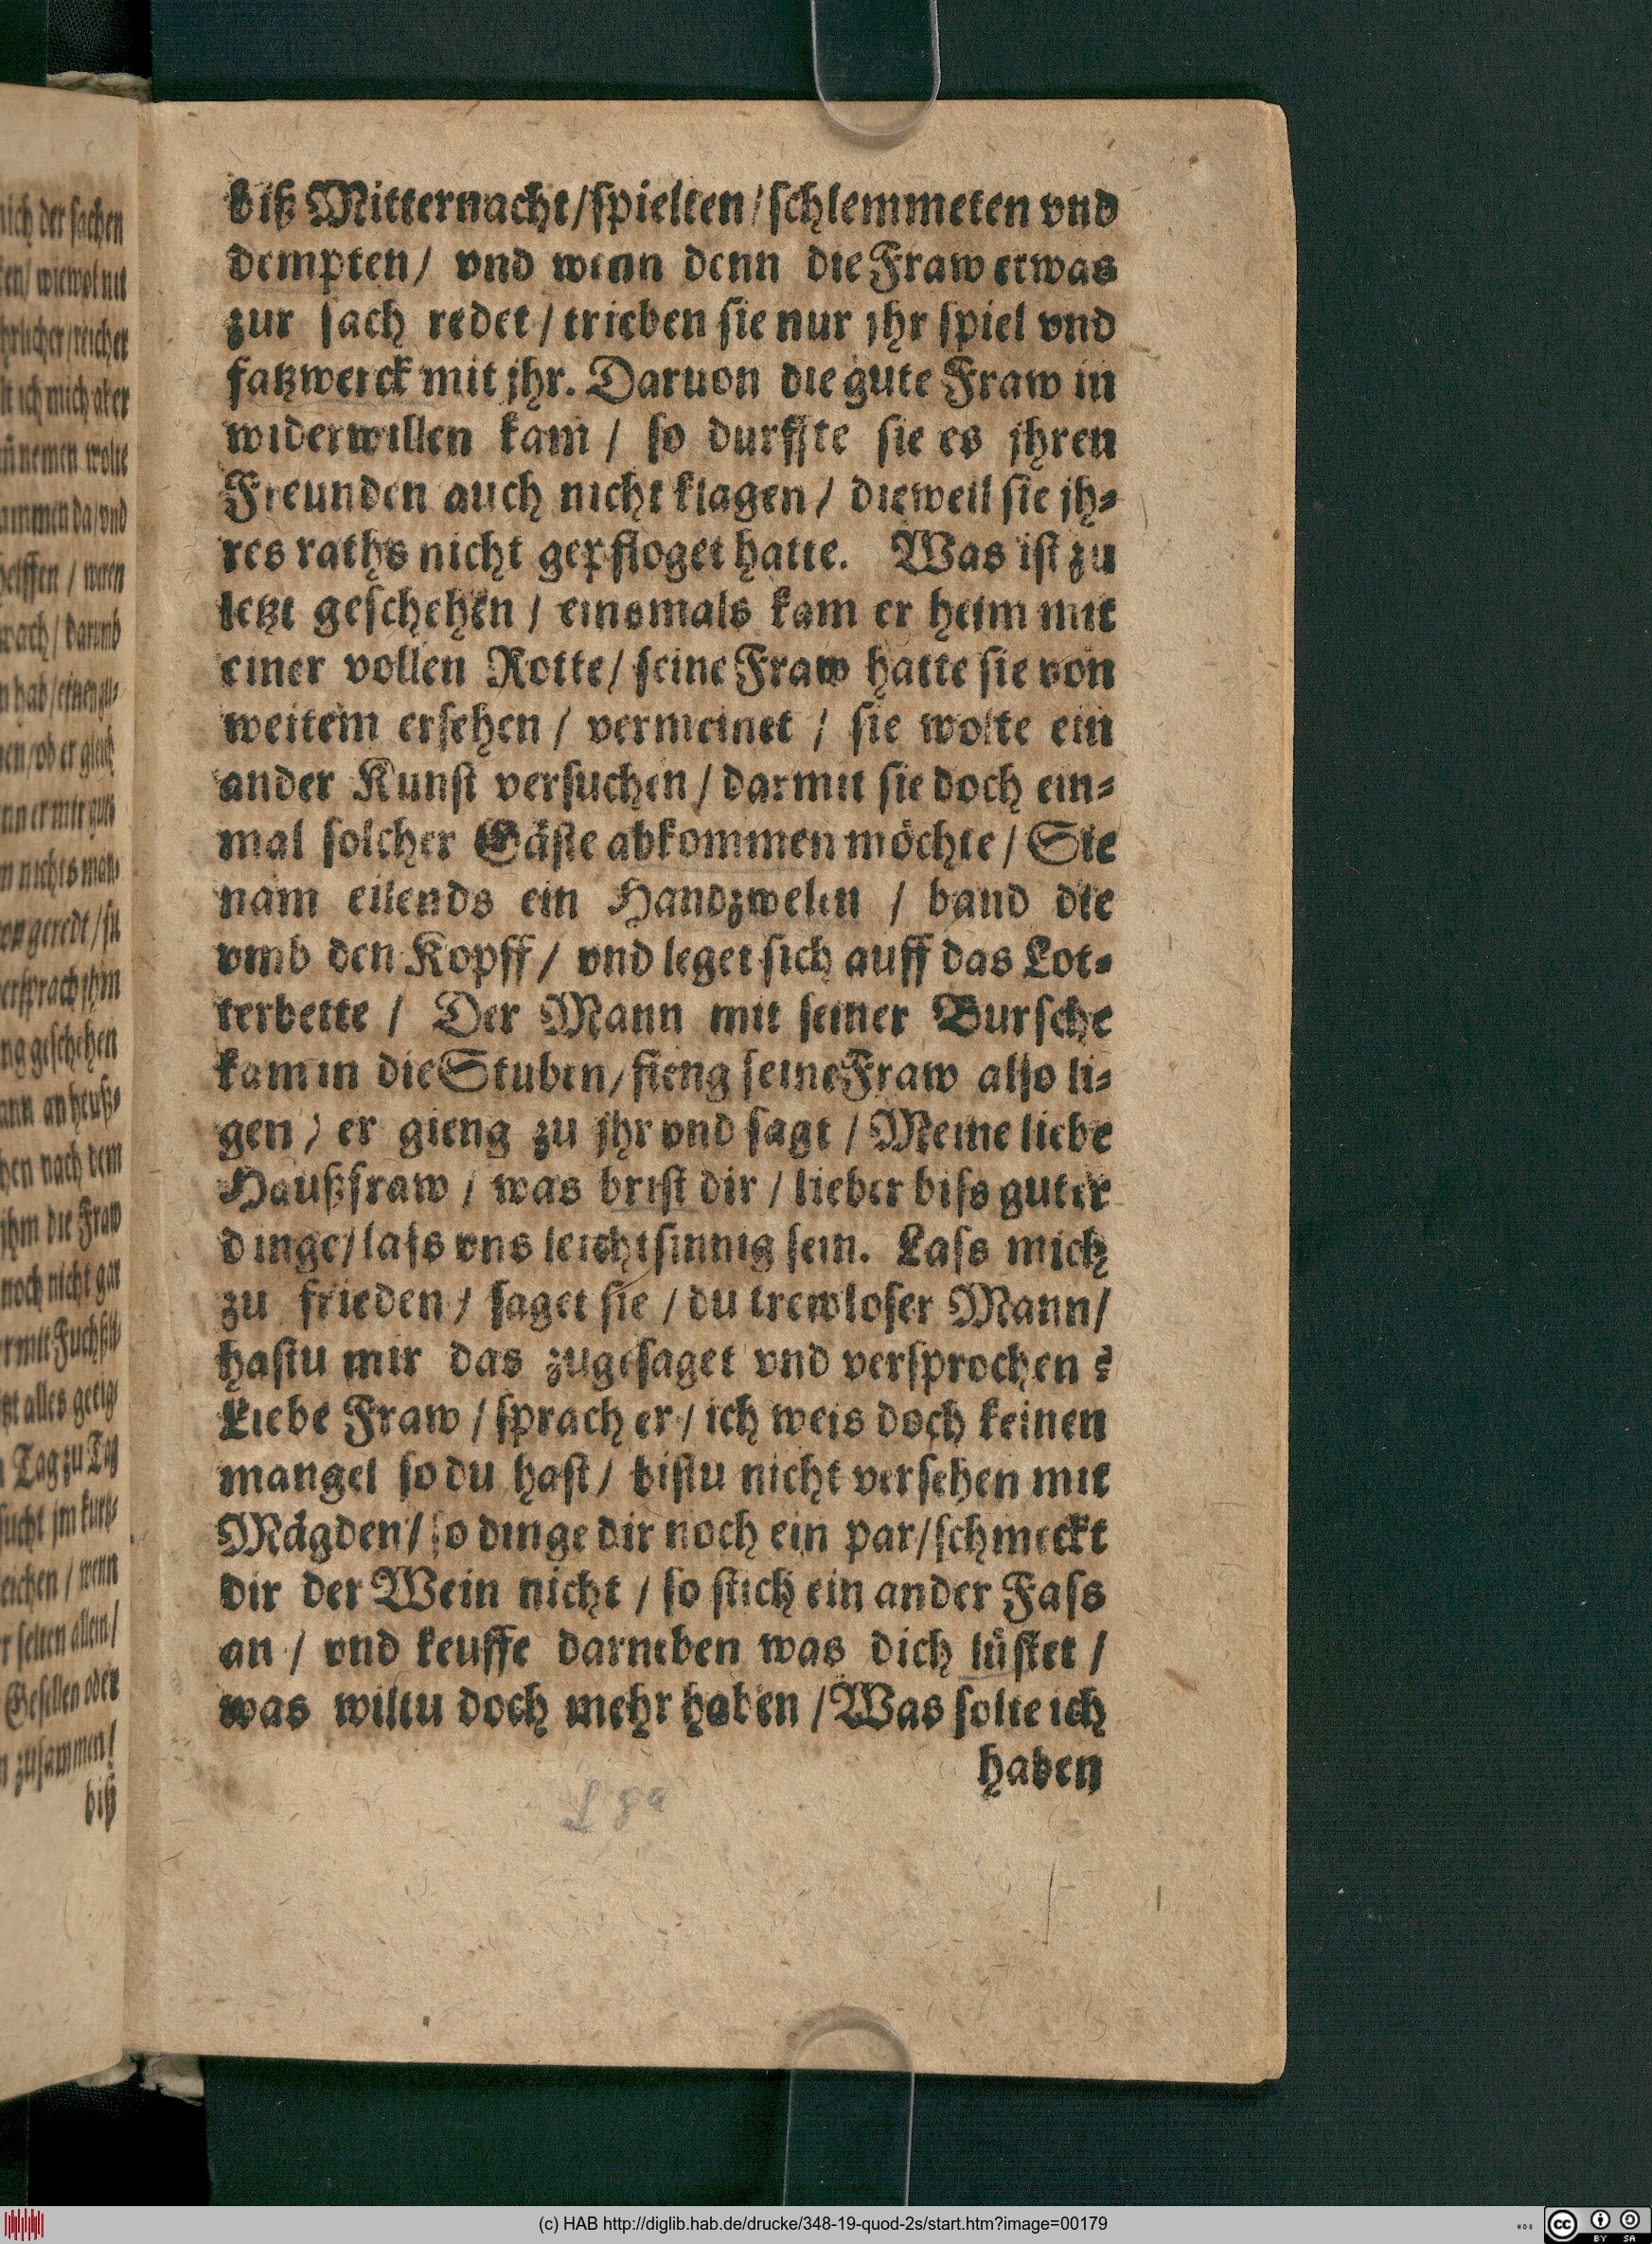 biß Mitternacht/spielten/schlemmeten vnd
dempten/ vnd wenn denn die Fraw etwas
zur sach redet/trieben sie nur jhr spiel vnd
fatzwerck mit jhr. Daruon die gute Fraw in
widerwillen kam/ so durffte sie es jhren
Freunden auch nicht klagen/ dieweil sie jh⸗
res raths nicht gepfloget hatte. Was ist zu
letzt geschehen/ einsmals kam er heim mit
einer vollen Rotte/ seine Fraw hatte sie von
weitem ersehen/ vermeinet/ sie wolte ein
ander Kunst versuchen/ darmit sie doch ein⸗
mal solcher Gäste abkommen möchte/ Sie
nam eilends ein Handzwelen / band die
vmb den Kopff/ vnd leget sich auff das Lot⸗
terbette / Der Mann mit seiner Bursche
kam in die Stuben/ fieng seine Fraw also li⸗
gen/ er gieng zu jhr vnd sagt / Meine liebe
Haußfraw / was brist dir / lieber biss guter
dinge/ lass vns leichtsinnig sein. Lass mich
zu frieden/ saget sie / du trewloser Mann/
hastu mir das zugesaget vnd versprochen?
Liebe Fraw / sprach er/ ich weis doch keinen
mangel so du hast/ bistu nicht versehen mit
Mägden/ so dinge dir noch ein par/schmeckt
dir der Wein nicht / so stich ein ander Fass
an / vnd keuffe darneben was dich lüstet /
was wiltu doch mehr haben /Was solte ich
haben
ich der sachen
wiewol nit
reicher
ich mich aber
nemen wolte
da/vnd
darumb
ob er gleich
nichts
geredt/
versprach jhm
geschehen
nach dem
jhm die Fraw
noch nicht gar
alles
Tag zu Tag
wenn
selten allein/
Gesellen oder
zusammen/
biß
(c) HAB http://diglib.hab.de/drucke/348-19-quod-2s/start.htm?image=00179
cc BY SA